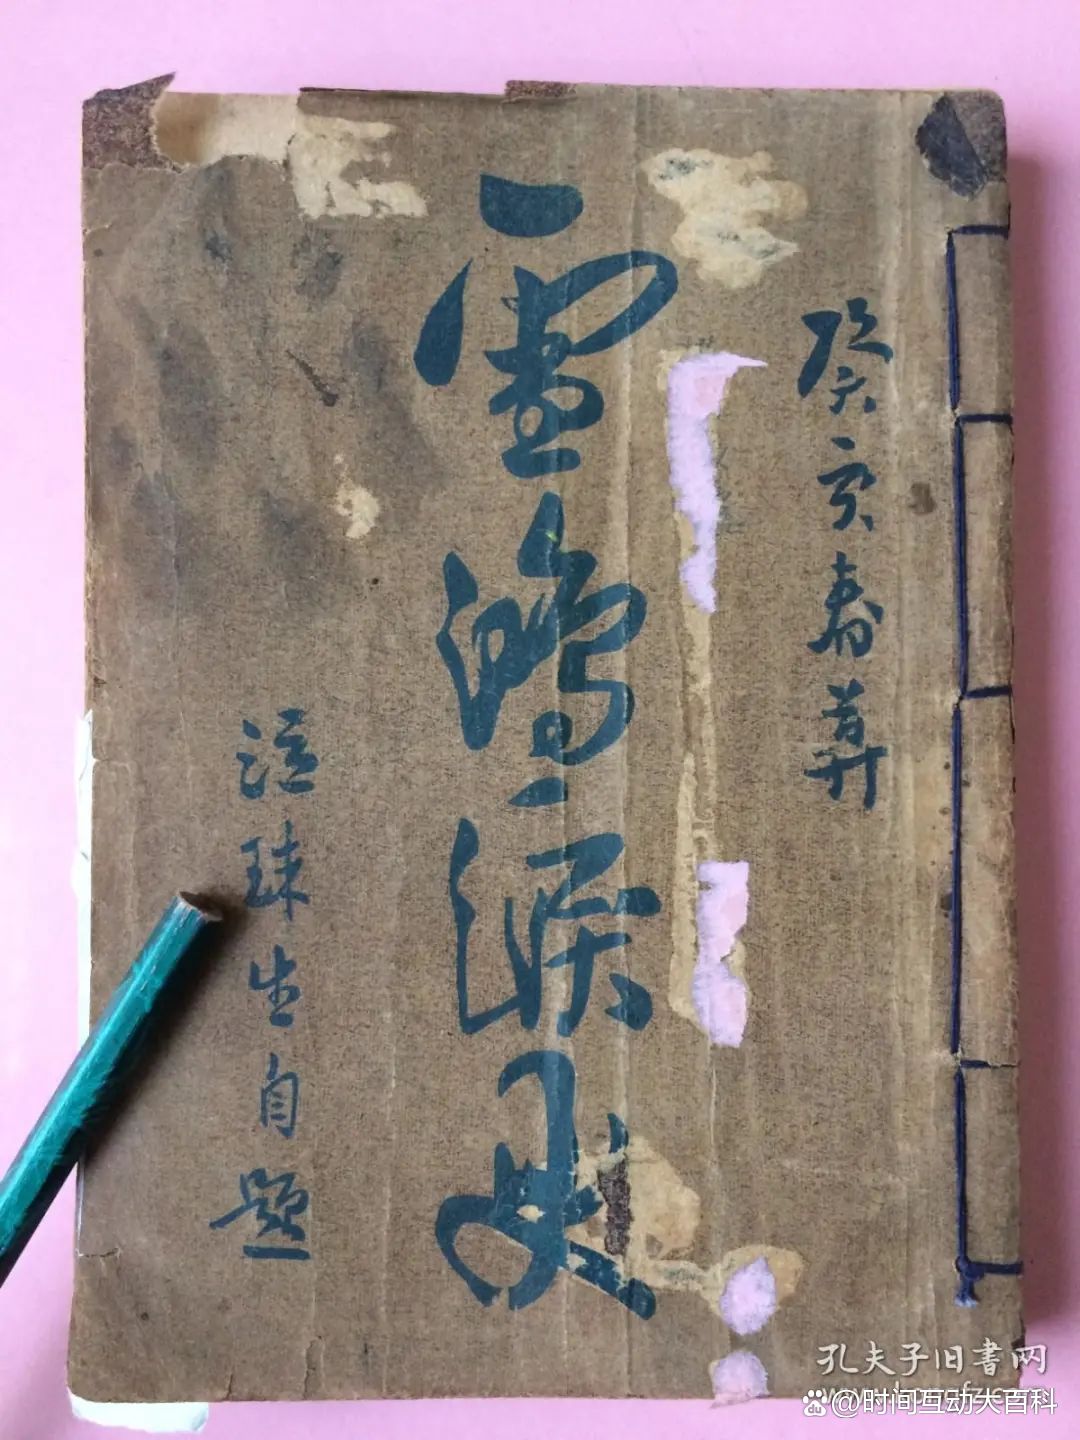 癸亥春莫
雪鴻淚史
泣珠生自題
孔夫子旧書网
@时间互动大百科